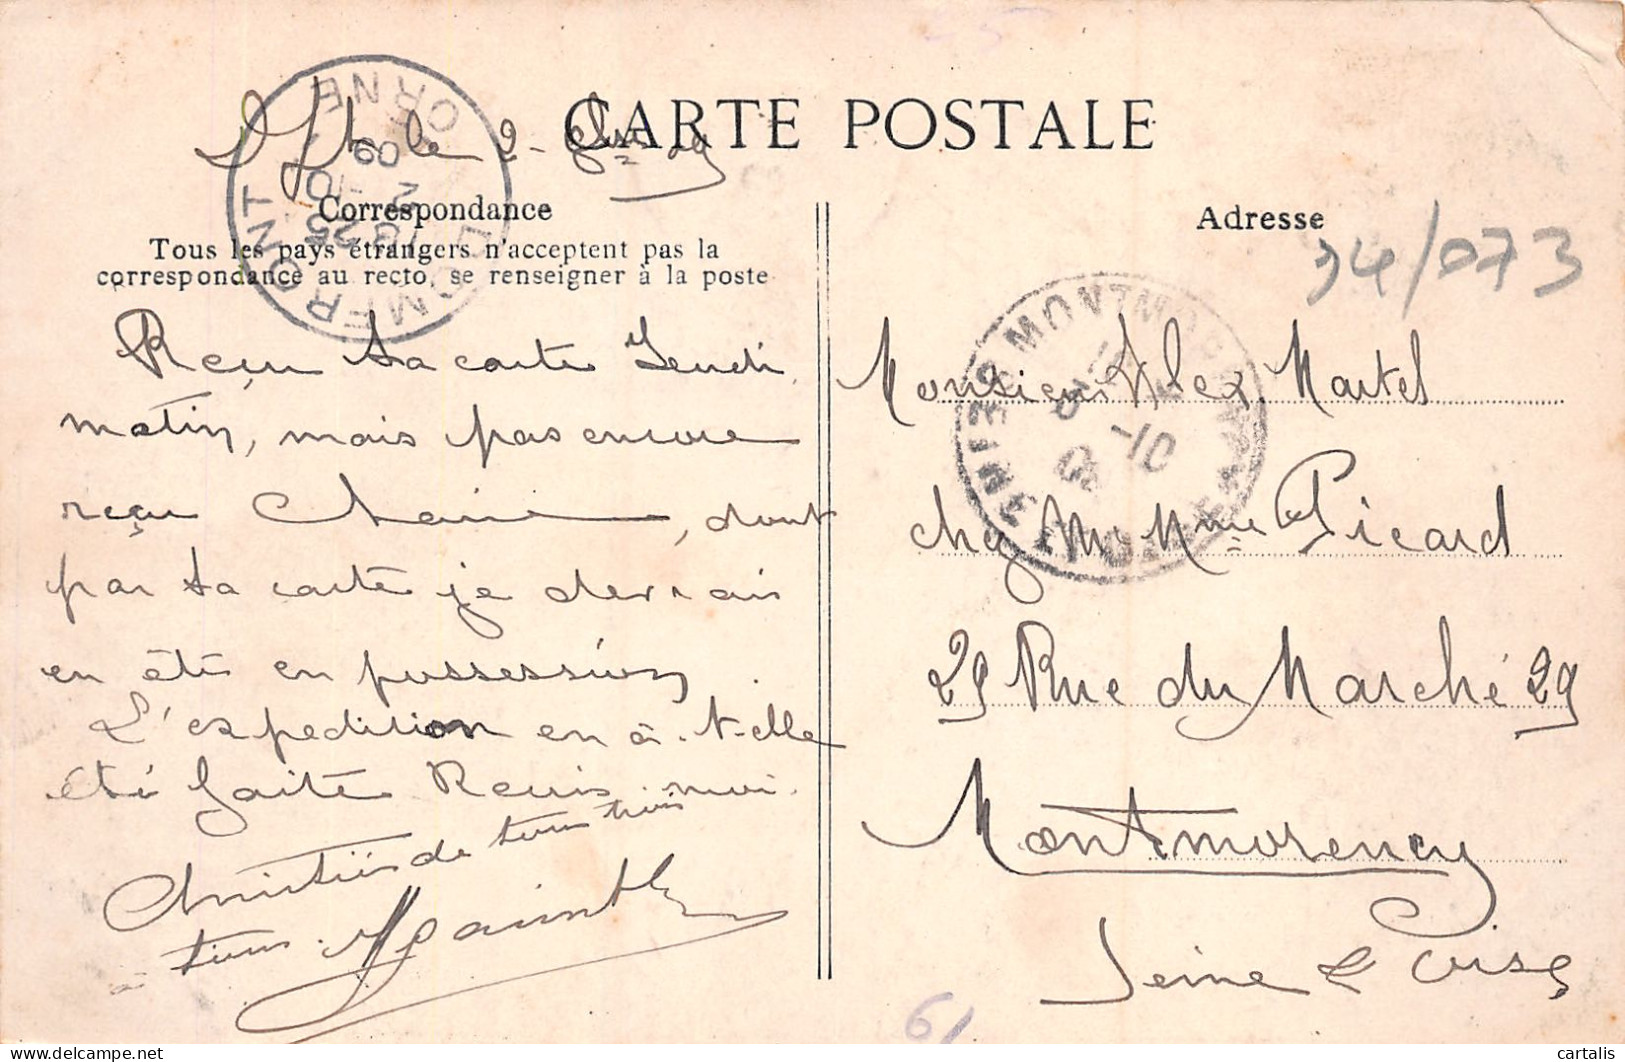 CARTE POSTALE
le 2 - 8bre 09
Correspondance
Tous les pays étrangers n'acceptent pas la
correspondance au recto, se renseigner à la poste
Reçu ta carte Jeudi
matin, mais pas encore
reçu Chaine, dont
par ta carte je devrais
en été en possession
L'expedition en a-t-elle
été faite
Amitiés de
ORNE
LOMERONT
18 25
2 -10
09
Adresse
34/073
Monsieur Alex. Martel
chez Mr & Mme Picard
29 Rue du Marché 29
Montmorency
Seine & Oise
MONTMORENCY
SEINE-ET-OISE
-10
09
61
cartalis